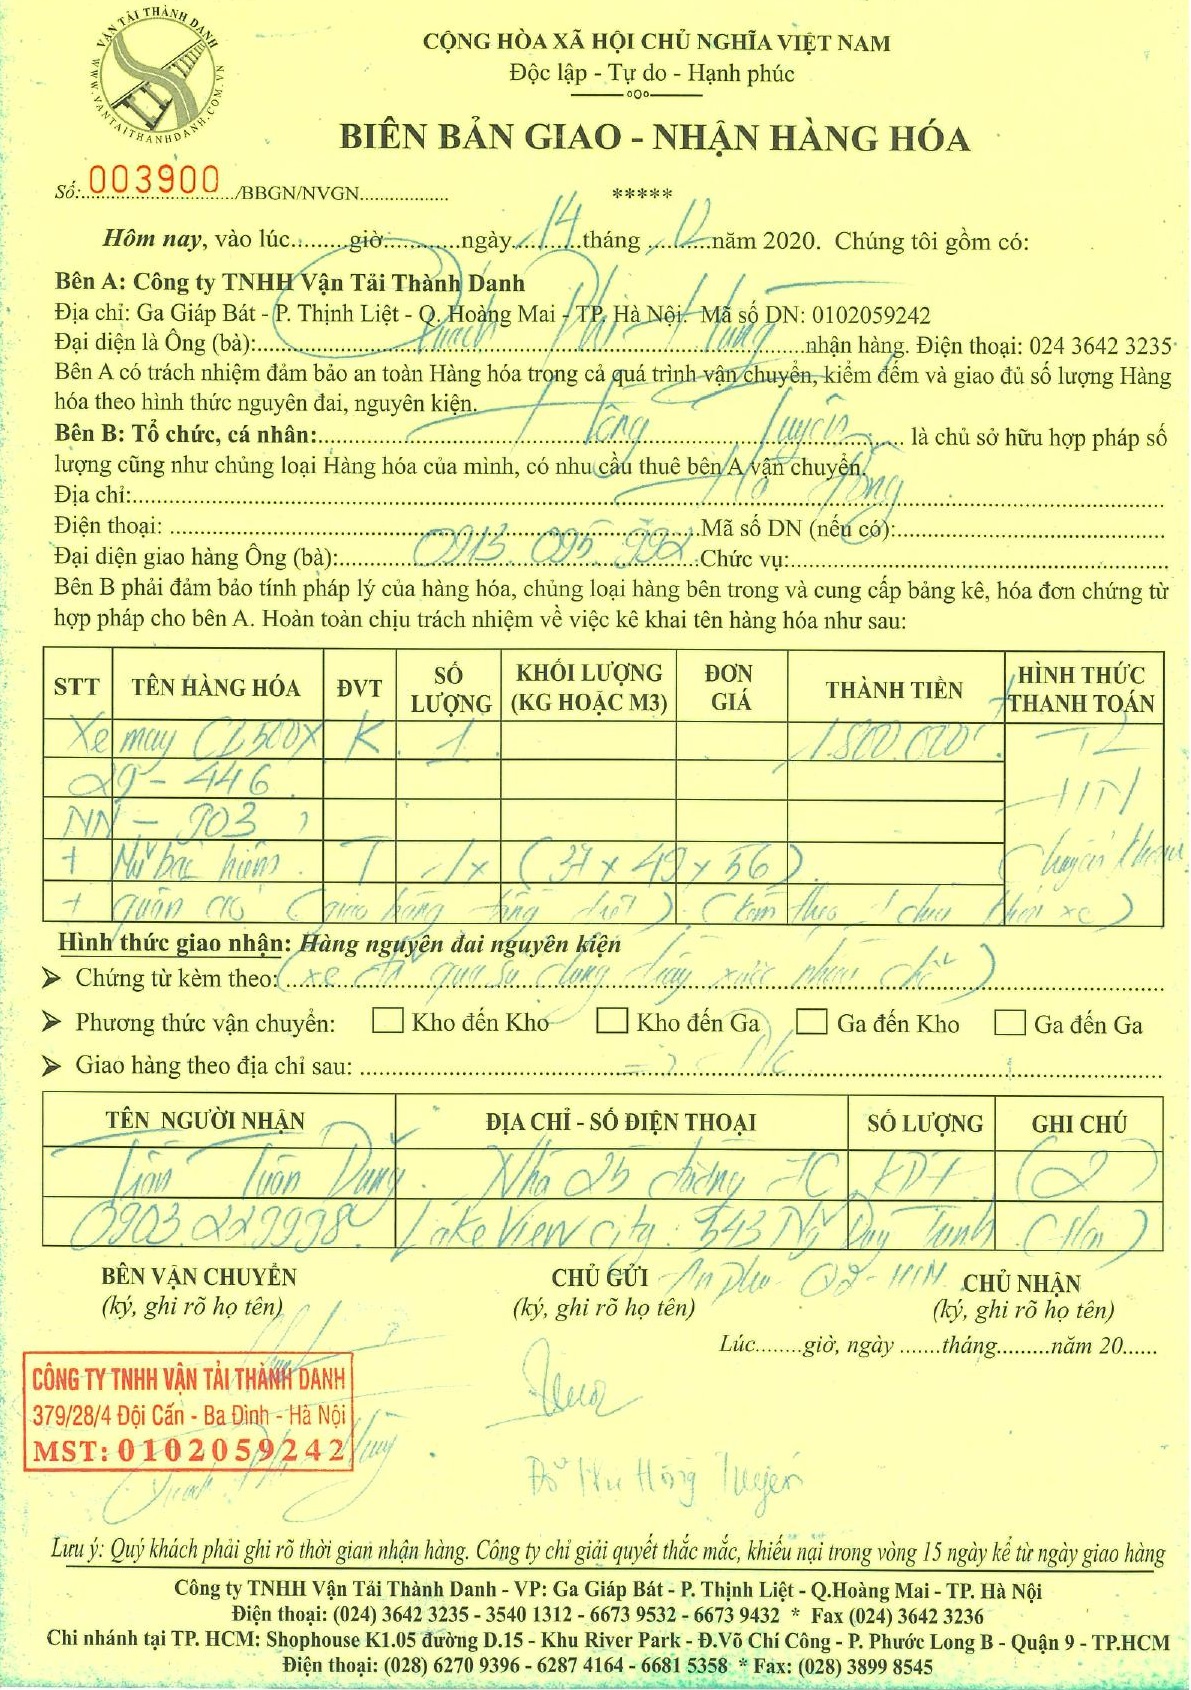 VẬN TẢI THÀNH DANH
WWW.VANTAITHANHDANH.COM.VN
CỘNG HÒA XÃ HỘI CHỦ NGHĨA VIỆT NAM
Độc lập - Tự do - Hạnh phúc
BIÊN BẢN GIAO - NHẬN HÀNG HÓA
Số:003900/BBGN/NVGN
*****
Hôm nay, vào lúc........giờ...........ngày 14 tháng 12 năm 2020. Chúng tôi gồm có:
Bên A: Công ty TNHH Vận Tải Thành Danh
Địa chỉ: Ga Giáp Bát - P. Thịnh Liệt - Q. Hoàng Mai - TP. Hà Nội. Mã số DN: 0102059242
Đại diện là Ông (bà): Quách Phi Hùng nhận hàng. Điện thoại: 024 3642 3235
Bên A có trách nhiệm đảm bảo an toàn Hàng hóa trong cả quá trình vận chuyển, kiểm đếm và giao đủ số lượng Hàng
hóa theo hình thức nguyên đai, nguyên kiện.
Bên B: Tổ chức, cá nhân: Hồng Tuyến là chủ sở hữu hợp pháp số
lượng cũng như chủng loại Hàng hóa của mình, có nhu cầu thuê bên A vận chuyển.
Địa chỉ:
Điện thoại: Mã số DN (nếu có):
Đại diện giao hàng Ông (bà): 0913.095.992 Chức vụ:
Bên B phải đảm bảo tính pháp lý của hàng hóa, chủng loại hàng bên trong và cung cấp bảng kê, hóa đơn chứng từ
hợp pháp cho bên A. Hoàn toàn chịu trách nhiệm về việc kê khai tên hàng hóa như sau:
STT TÊN HÀNG HÓA ĐVT SỐ LƯỢNG KHỐI LƯỢNG (KG HOẶC M3) ĐƠN GIÁ THÀNH TIỀN HÌNH THỨC THANH TOÁN
Xe may CB500X K 1 1.800.000 TL
29-446 HN
NN - 903
+ Mũ bảo hiểm T 1 x (37 x 49 x 56)
+ quần áo (giao hàng (kèm theo 1 chìa khóa xe)
Hình thức giao nhận: Hàng nguyên đai nguyên kiện
Chứng từ kèm theo: (xe đã qua sử dụng
Phương thức vận chuyển: Kho đến Kho Kho đến Ga Ga đến Kho Ga đến Ga
Giao hàng theo địa chỉ sau: => Đ/c
TÊN NGƯỜI NHẬN ĐỊA CHỈ - SỐ ĐIỆN THOẠI SỐ LƯỢNG GHI CHÚ
Trần Tuấn Dũng. Nhà 25 đường KĐT (2)
0903.229998 Lake View City. 343 Duy Trinh (Hai)
An Phú Q2 - HCM
BÊN VẬN CHUYỂN CHỦ GỬI CHỦ NHẬN
(ký, ghi rõ họ tên) (ký, ghi rõ họ tên) (ký, ghi rõ họ tên)
Lúc........giờ, ngày .......tháng.........năm 20......
CÔNG TY TNHH VẬN TẢI THÀNH DANH
379/28/4 Đội Cấn - Ba Đình - Hà Nội
MST: 0102059242
Đỗ Thu Hồng Tuyến
Lưu ý: Quý khách phải ghi rõ thời gian nhận hàng. Công ty chỉ giải quyết thắc mắc, khiếu nại trong vòng 15 ngày kể từ ngày giao hàng
Công ty TNHH Vận Tải Thành Danh - VP: Ga Giáp Bát - P. Thịnh Liệt - Q.Hoàng Mai - TP. Hà Nội
Điện thoại: (024) 3642 3235 - 3540 1312 - 6673 9532 - 6673 9432 * Fax (024) 3642 3236
Chi nhánh tại TP. HCM: Shophouse K1.05 đường D.15 - Khu River Park - Đ.Võ Chí Công - P. Phước Long B - Quận 9 - TP.HCM
Điện thoại: (028) 6270 9396 - 6287 4164 - 6681 5358 * Fax: (028) 3899 8545